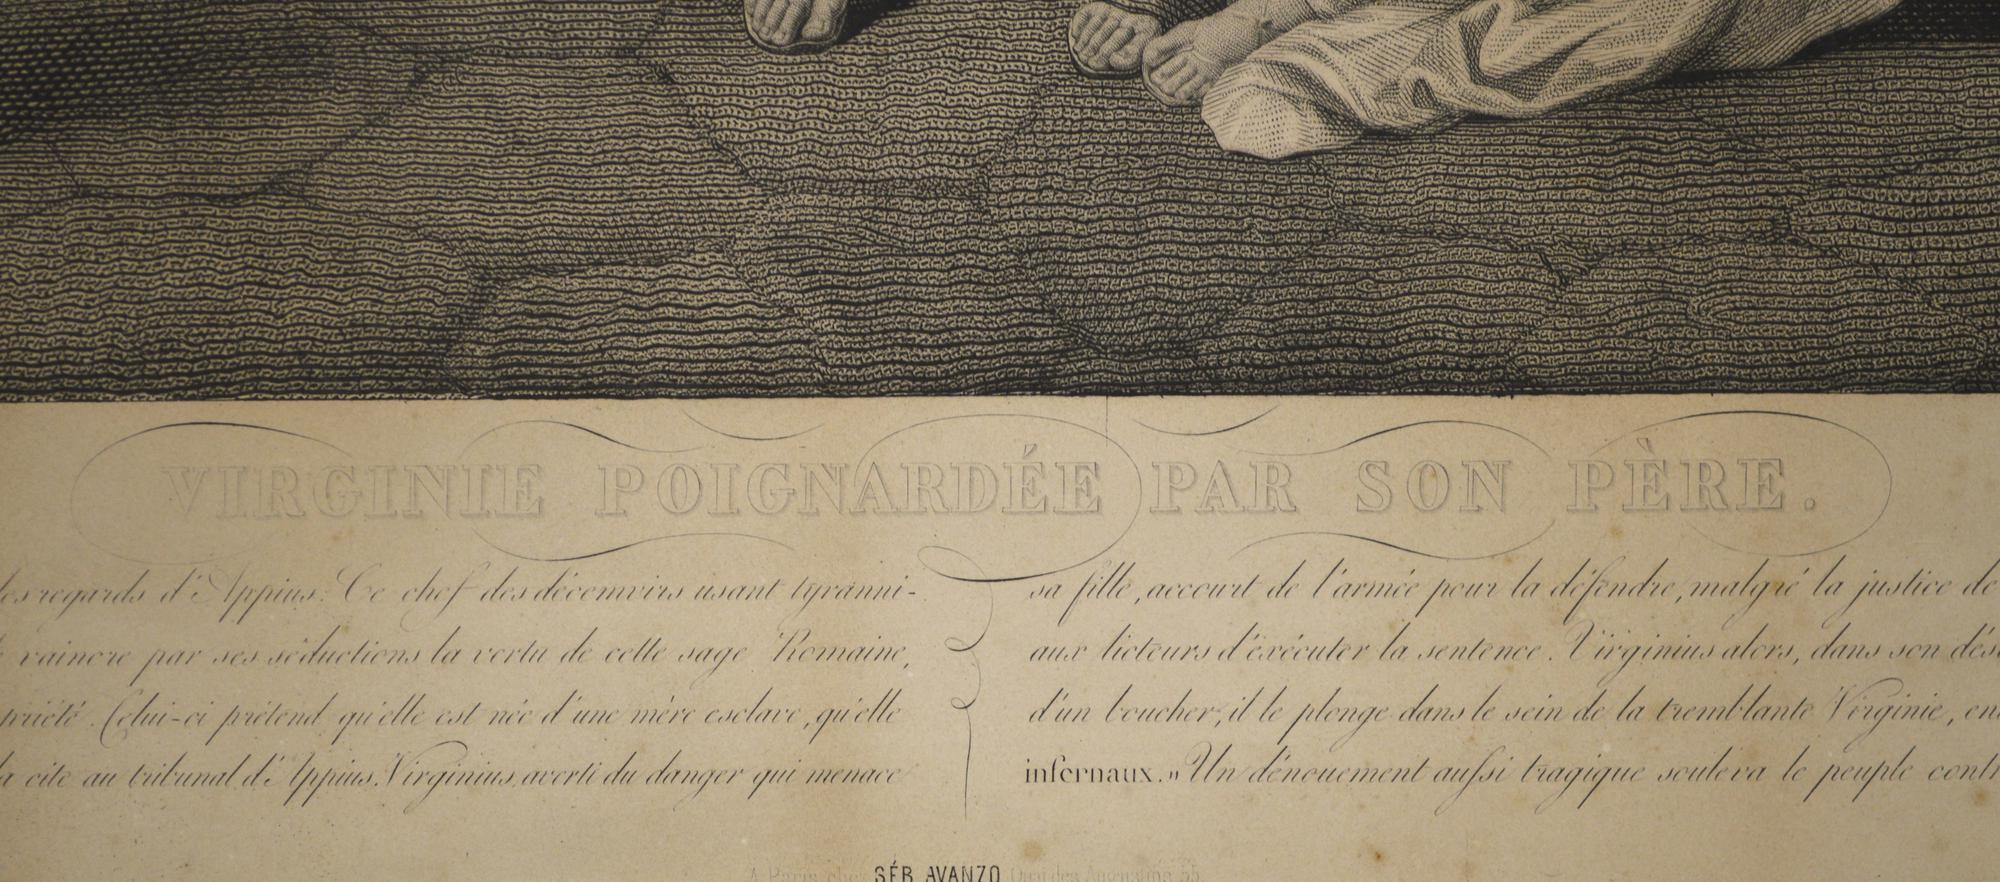 VIRGINIE POIGNARDÉE PAR SON PÈRE.
les regards d'Appius. Ce chef des décemvirs usant tyranni-
vaincre par ses séductions la vertu de cette sage Romaine,
Celui-ci prétend qu'elle est née d'une mère esclave, qu'elle
la cite au tribunal d'Appius. Virginius averti du danger qui menace
sa fille, accourt de l'armée pour la défendre, malgré la justice de
aux licteurs d'éxécuter la sentence. Virginius alors, dans son
d'un boucher, il le plonge dans le sein de la tremblante Virginie,
infernaux." Un dénouement aussi tragique souleva le peuple
A Paris chez SÉB. AVANZO Quai des Augustins 55